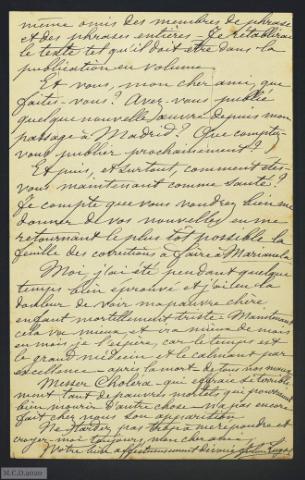 même omis des membres de phrase
et des phrases entières - Je rétablirai
le texte tel qu'il doit être dans la
publication en volume.
Et vous, mon cher ami, que
faites-vous? Avez-vous publié
quelque nouvelle œuvre depuis mon
passage à Madrid? Que comptez-
vous publier prochainement?
Et puis, et surtout, comment êtes-
vous maintenant comme santé?
Je compte que vous voudrez bien me
donner de vos nouvelles en me
retournant le plus tôt possible la
feuille des corrections à faire à Marianela
Moi, j'ai été pendant quelque
temps bien éprouvé et j'ai eu la
douleur de voir ma pauvre chère
enfant mortellement triste - Maintenant
cela va mieux et ira mieux de mois
en mois je l'espère, car le temps est
le grand médecin et le calmant par
excellence - après la mort de tous nos maux
Messer Cholera - qui effraie si terrible-
ment tant de pauvres mortels qui pourraient
bien mourir d'autre chose - n'a pas encore
fait chez nous son apparition.
Ne tardez pas trop à me répondre et
croyez moi toujours, mon cher ami,
Votre bien affectueusement dévoué
M.C.D. 2020